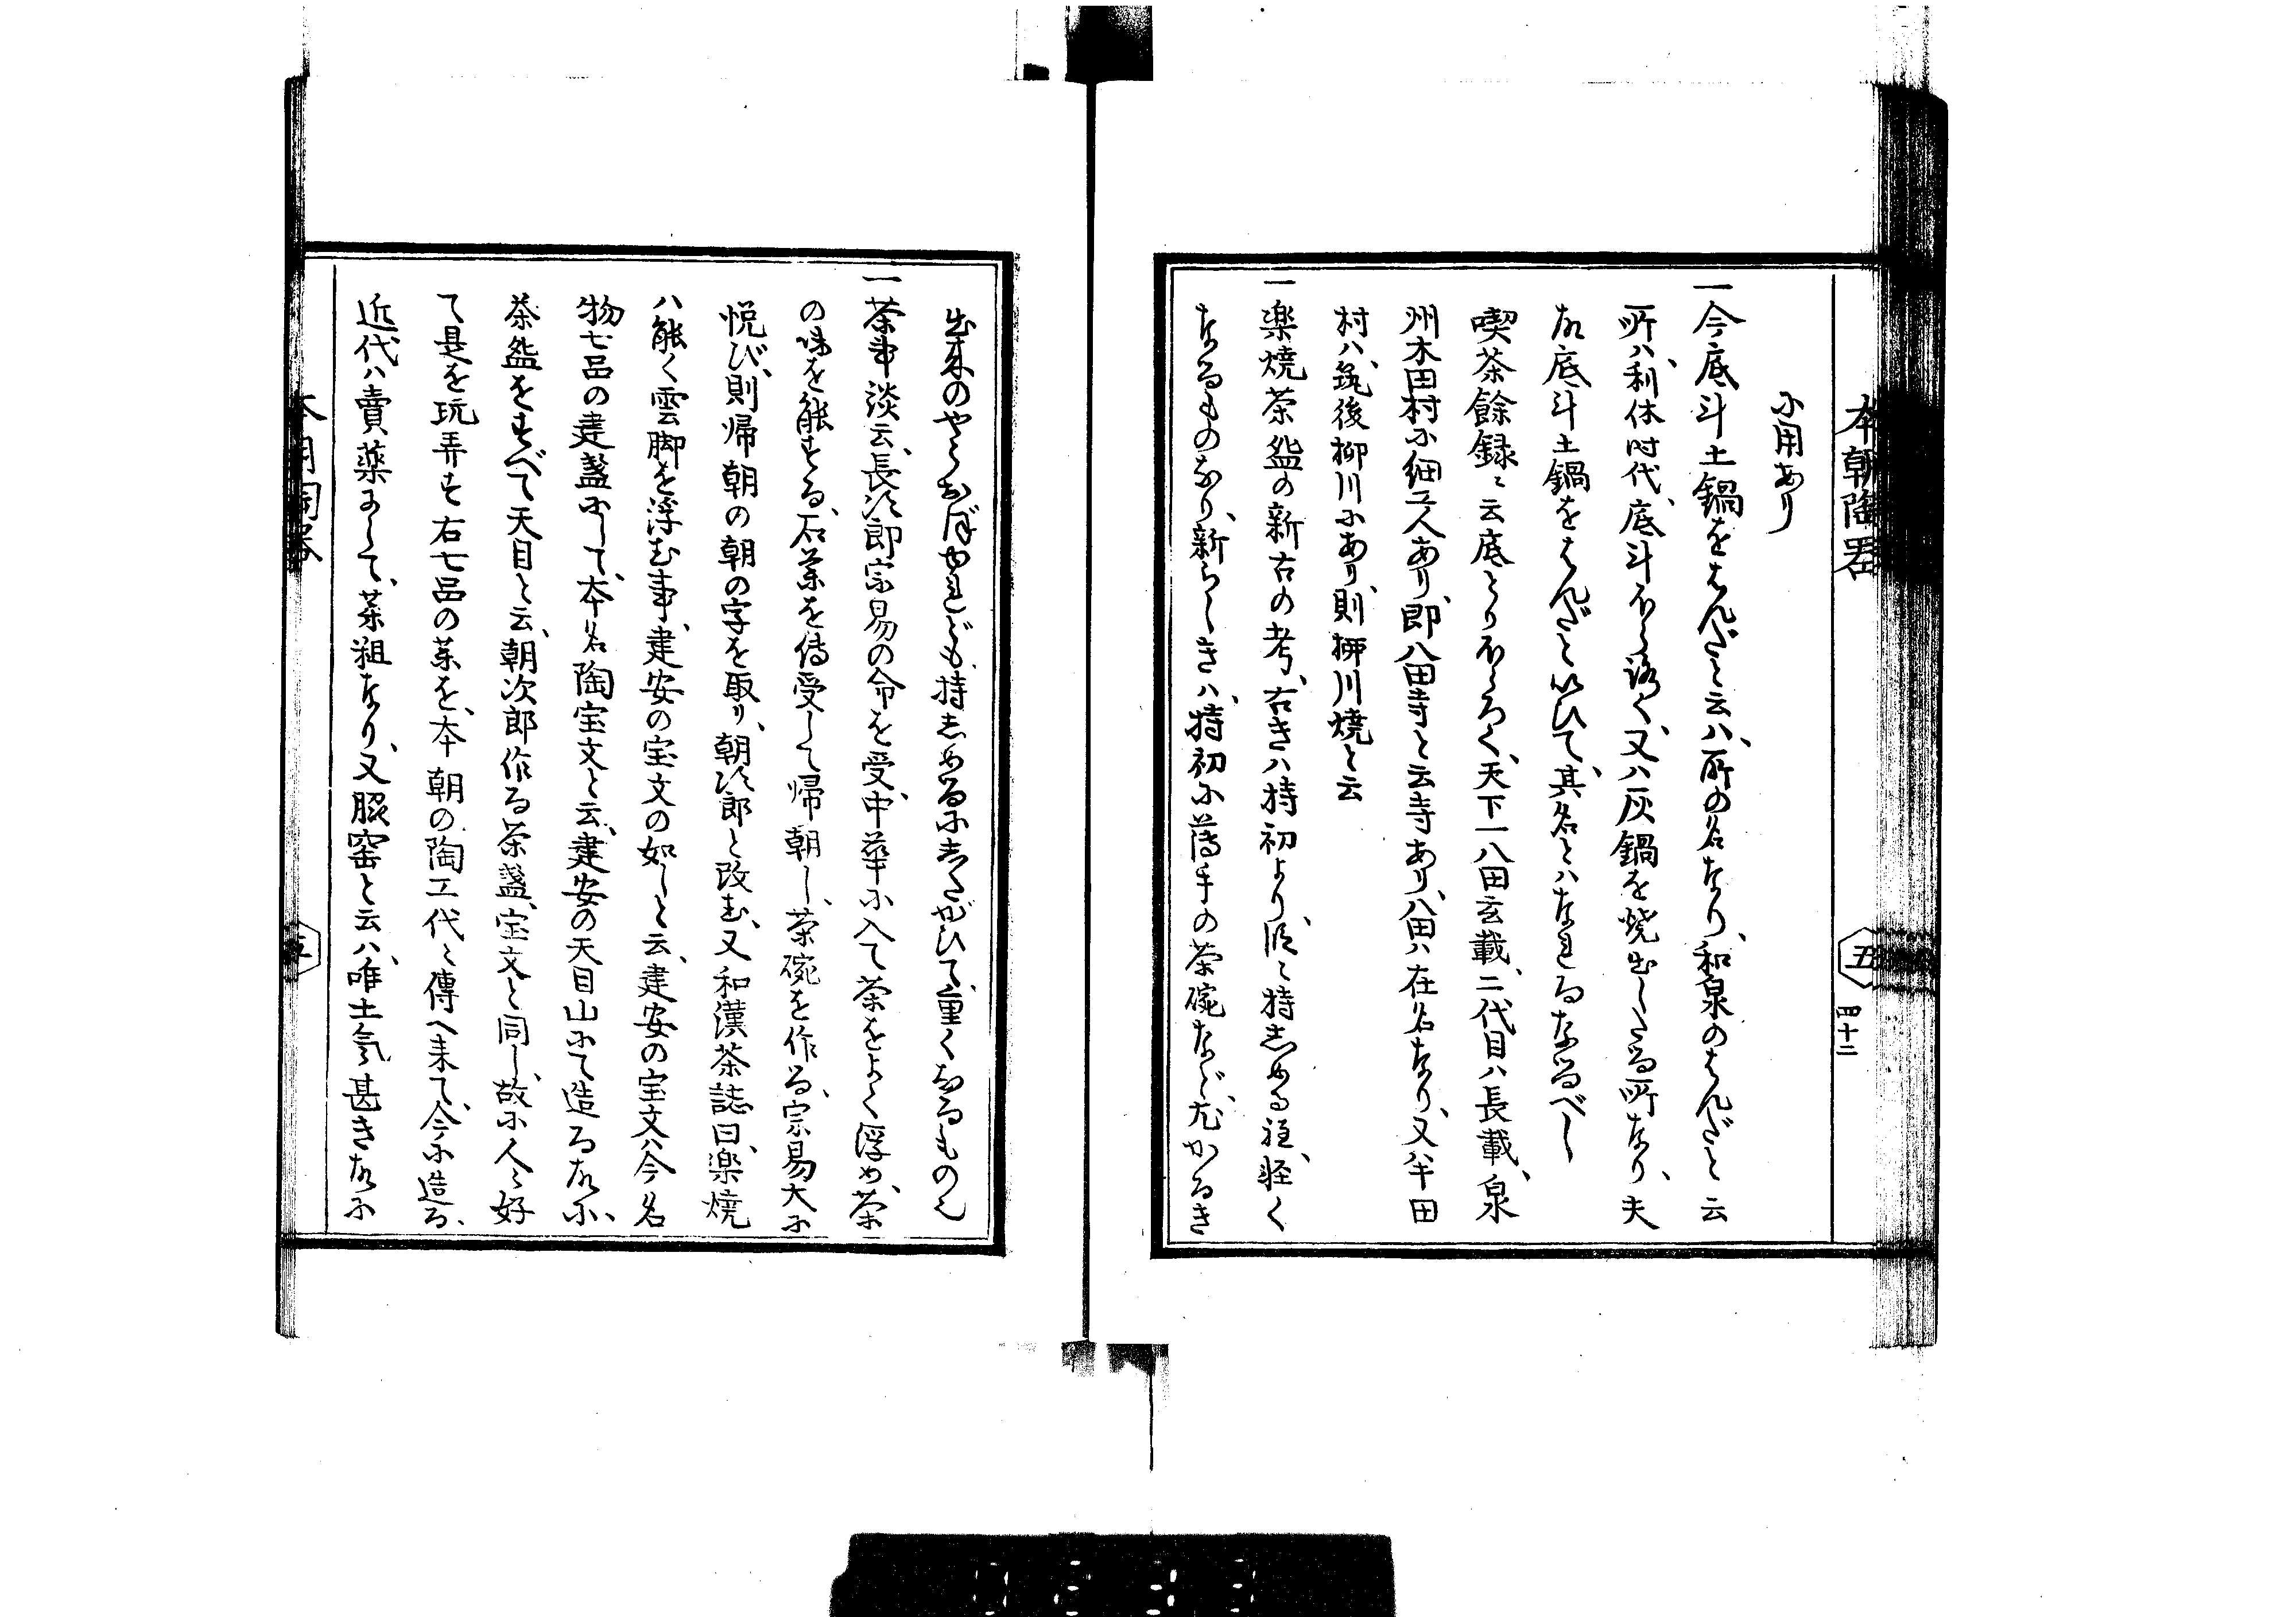 本朝陶器
五
四十二
に用あり
一今底斗土鍋をはんだと云ハ、所の名なり、和泉のはんだと云
所ハ、利休時代、底斗ほうろく、又ハ灰鍋を焼出したる所なり、夫
故底斗土鍋をはんだといひて、其名とハなれるなるべし
喫茶餘録ニ云底とりほうろく、天下一八田玄載、二代目ハ長載、泉
州木田村に細工人あり、即八田寺と云寺あり、八田ハ在名なり、又ハ半田
村ハ、筑後柳川にあり、則柳川焼と云
一楽焼茶盌の新古の考、古きハ持初より、段々持志める程、軽く
なるものなり、新らしきハ、持初に薄手の茶碗など、尤かるき
出来のやうおぼゆれども、持志めるに志たがひて、重くなるものえ
一茶事談云、長次郎宗易の命を受、中華に入て茶をよく浮め、茶
の味を能する、石薬を傳受して帰朝し、茶碗を作る、宗易大に
悦び、則帰朝の朝の字を取り、朝次郎と改む、又和漢茶誌曰、楽焼
ハ能く雲脚を浮む事、建安の宝文の如しと云、建安の宝文ハ今名
物七品の建盞にして、本名陶宝文と云、建安の天目山にて造る故に、
茶盌をすべて天目と云、朝次郎作る茶盞、宝文と同し、故に人々好
て是を玩弄す右七品の薬を、本朝の陶工代々傳へ来て、今に造る、
近代ハ賣薬にして、茶粗なり、又脇窑と云ハ、唯土気甚き故に